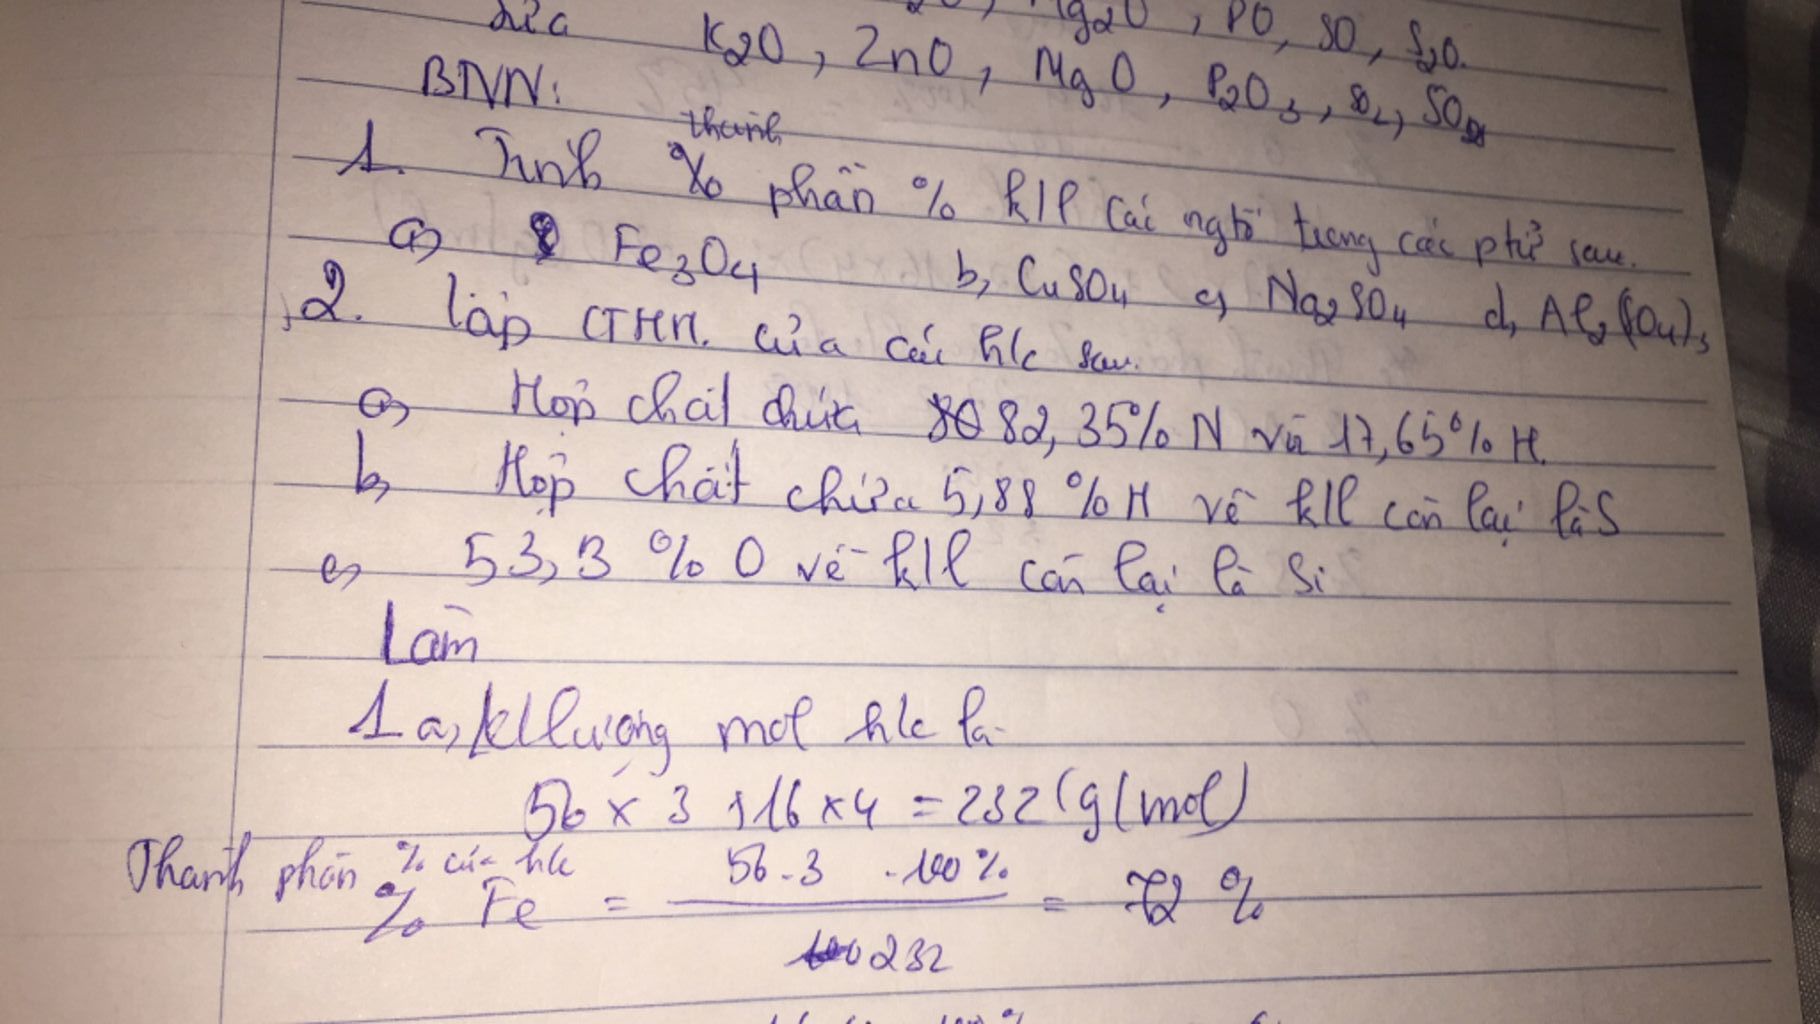 Mg2O, PO, SO, S2O.
K2O, ZnO, MgO, P2O3, SO
BNN:
thành
1. Tính % phần % klp các ngtố trong các ptử sau.
a, Fe3O4 b, CuSO4 c, Na2SO4 d, Al2(SO4)3
2. lập CTHH. của các h/c sau.
a, Hợp chất chứa 82,35% N và 17,65% H.
b, Hợp chất chứa 5,88 % H về kll còn lại là S
c, 53,3 % O về kll còn lại là Si
Làm
1 a, kl lượng mol h/c là
56 x 3 + 16 x 4 = 232 (g/mol)
Thành phần % của h/c
% Fe = 56.3 .100% = 72 %
232